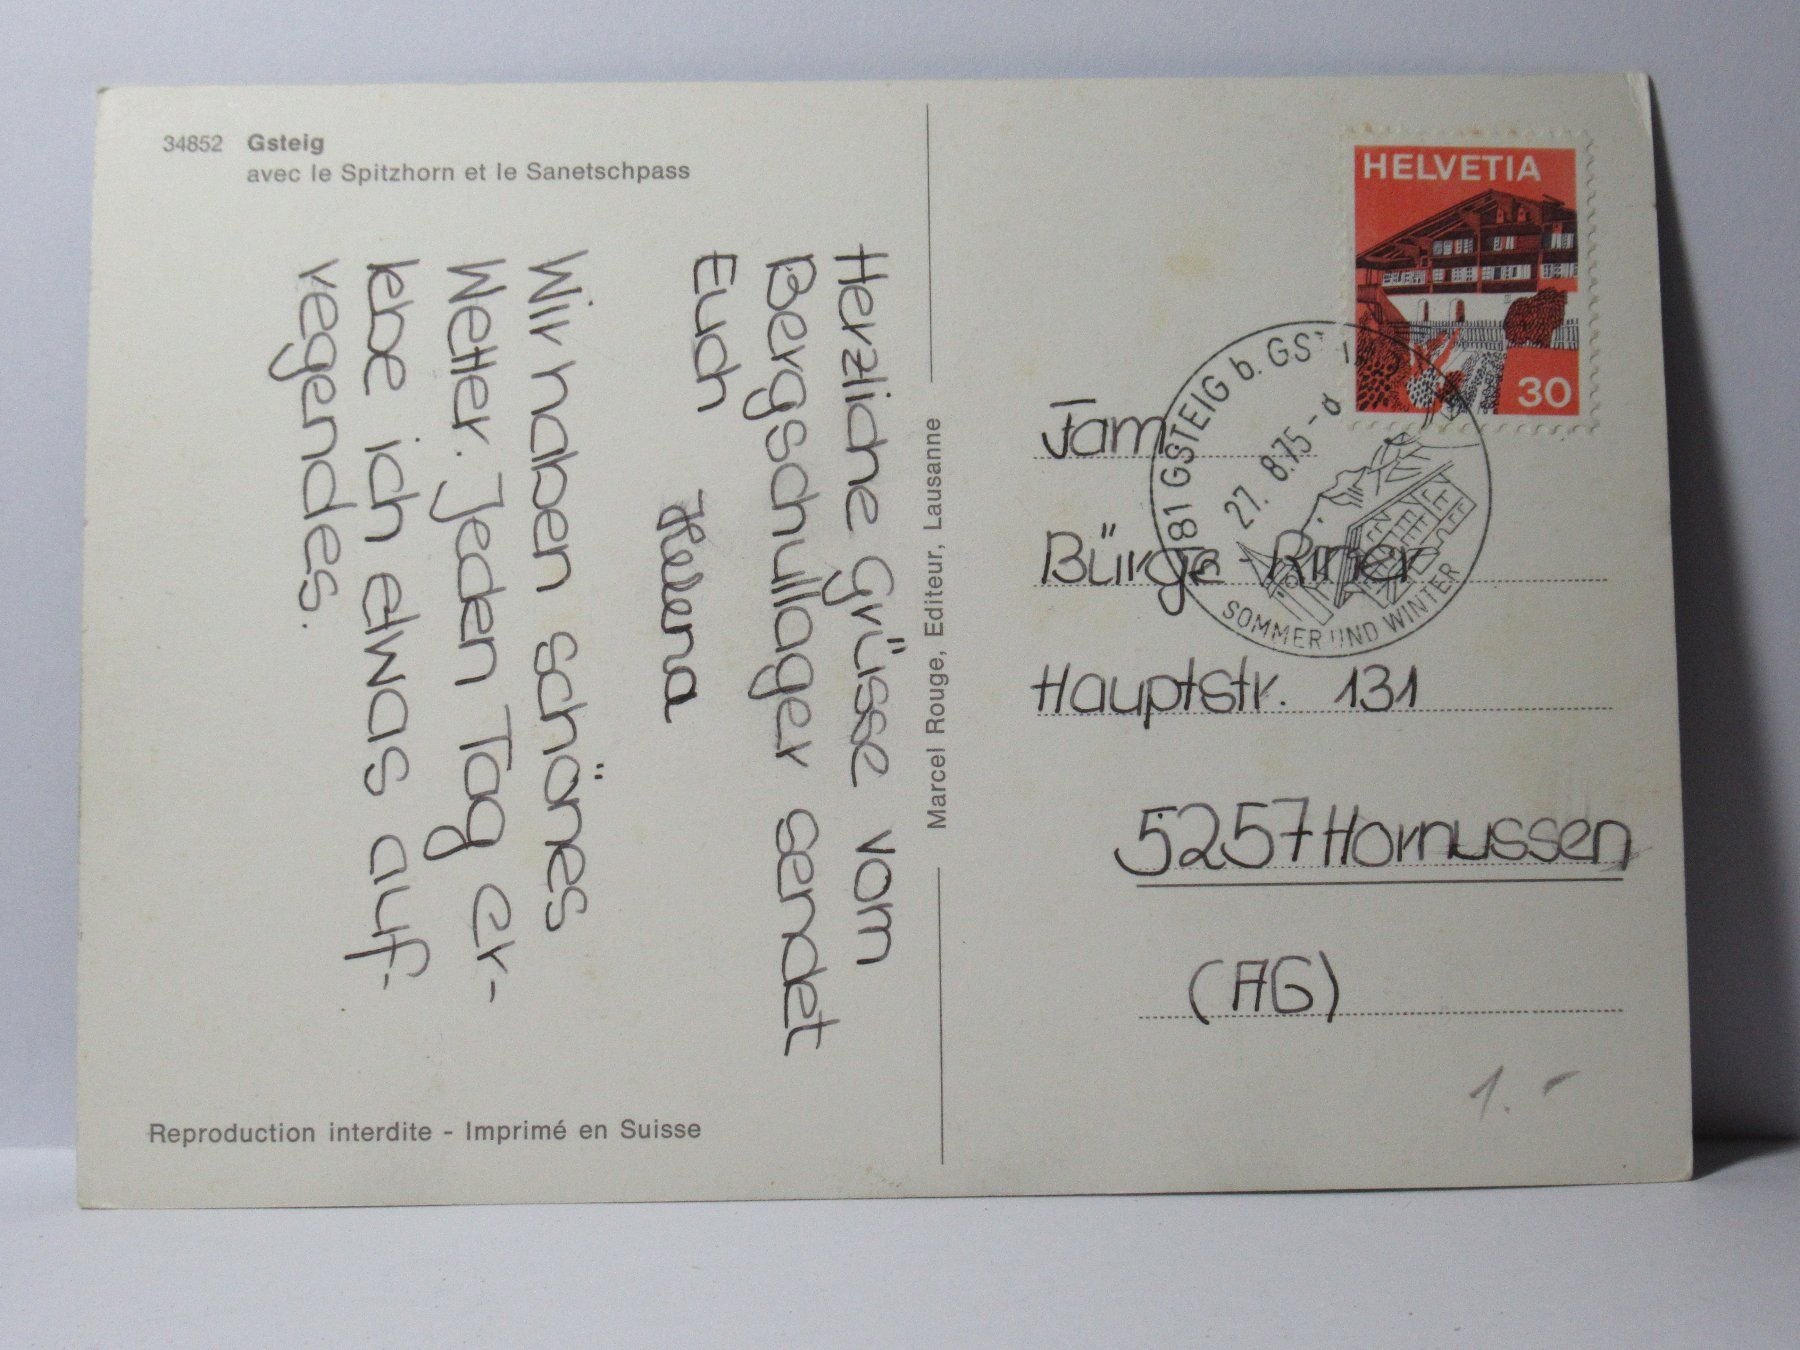 34852 Gsteig
avec le Spitzhorn et le Sanetschpass
Herzliche Grüsse vom
Bergschullager sendet
Euch
Helena
Wir haben schönes
Wetter. Jeden Tag er-
lebe ich etwas auf-
regendes.
Reproduction interdite - Imprimé en Suisse
Marcel Rouge, Editeur, Lausanne
HELVETIA
30
GSTEIG b. GST
27. 8.75 -
SOMMER UND WINTER
Fam
Bürge - Riner
Hauptstr. 131
5257 Hornussen
(AG)
1.-